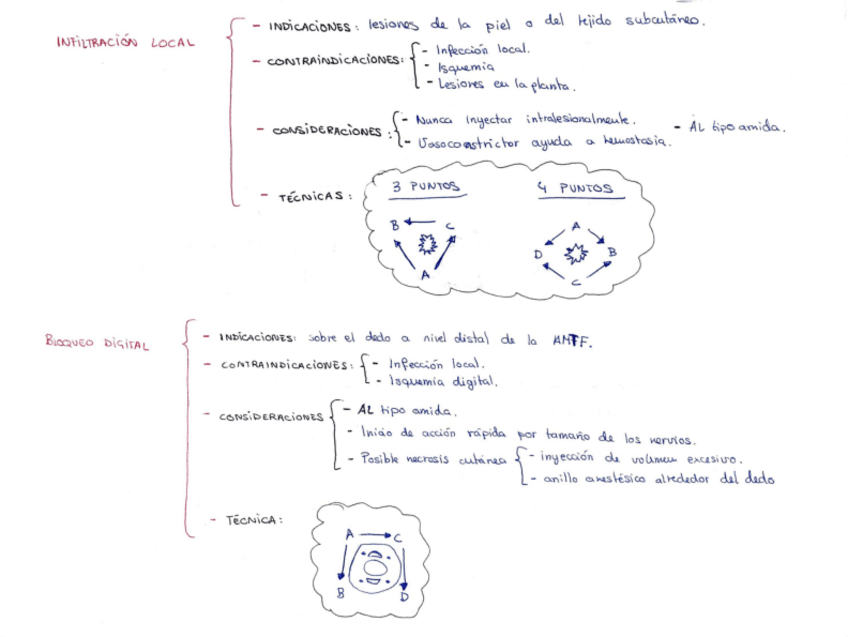 INFILTRACIÓN LOCAL
- INDICACIONES: lesiones de la piel o del tejido subcutáneo.
- CONTRAINDICACIONES:
- Infección local.
- Isquemia
- Lesiones en la planta.
- CONSIDERACIONES:
- Nunca inyectar intralesionalmente.
- AL tipo amida.
- Vasoconstrictor ayuda a hemostasia.
- TÉCNICAS:
3 PUNTOS
4 PUNTOS
B C
A
A
D B
C
BLOQUEO DIGITAL
- INDICACIONES: sobre el dedo a nivel distal de la AMTF.
- CONTRAINDICACIONES:
- Infección local.
- Isquemia digital.
- CONSIDERACIONES
- AL tipo amida.
- Inicio de acción rápida por tamaño de los nervios.
- Posible necrosis cutánea
- inyección de volumen excesivo.
- anillo anestésico alrededor del dedo
- TÉCNICA:
A C
B D